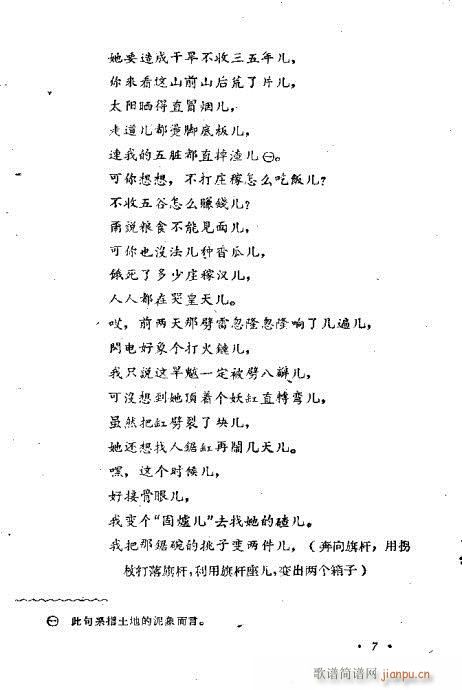 她要造成干旱不收三五年儿，
你来看这山前山后荒了片儿，
太阳晒得直冒烟儿，
走道儿都烫脚底板儿，
連我的五脏都直掉渣儿㊀。
可你想想，不打庄稼怎么吃飯儿？
不收五谷怎么賺錢儿？
甭說粮食不能見面儿，
可你也沒法儿种香瓜儿，
餓死了多少庄稼汉儿，
人人都在哭皇天儿。
哎，前两天那劈雷忽隆忽隆响了几遍儿，
閃电好象个打火鏈儿，
我只說这旱魃一定被劈八瓣儿，
可沒想到她頂着个妖缸直轉弯儿，
虽然把缸劈裂了块儿，
她还想找人鋸缸再閙几天儿。
嘿，这个时候儿，
好接骨眼儿，
我变个“固爐儿”去找她的碴儿。
我把那鋸碗的挑子变两件儿，（奔向旗杆，用拐
杖打落旗杆，利用旗杆座儿，变出两个箱子）
㊀ 此句系指土地的泥象而言。
· 7 ·
歌谱简谱网
jianpu.cn